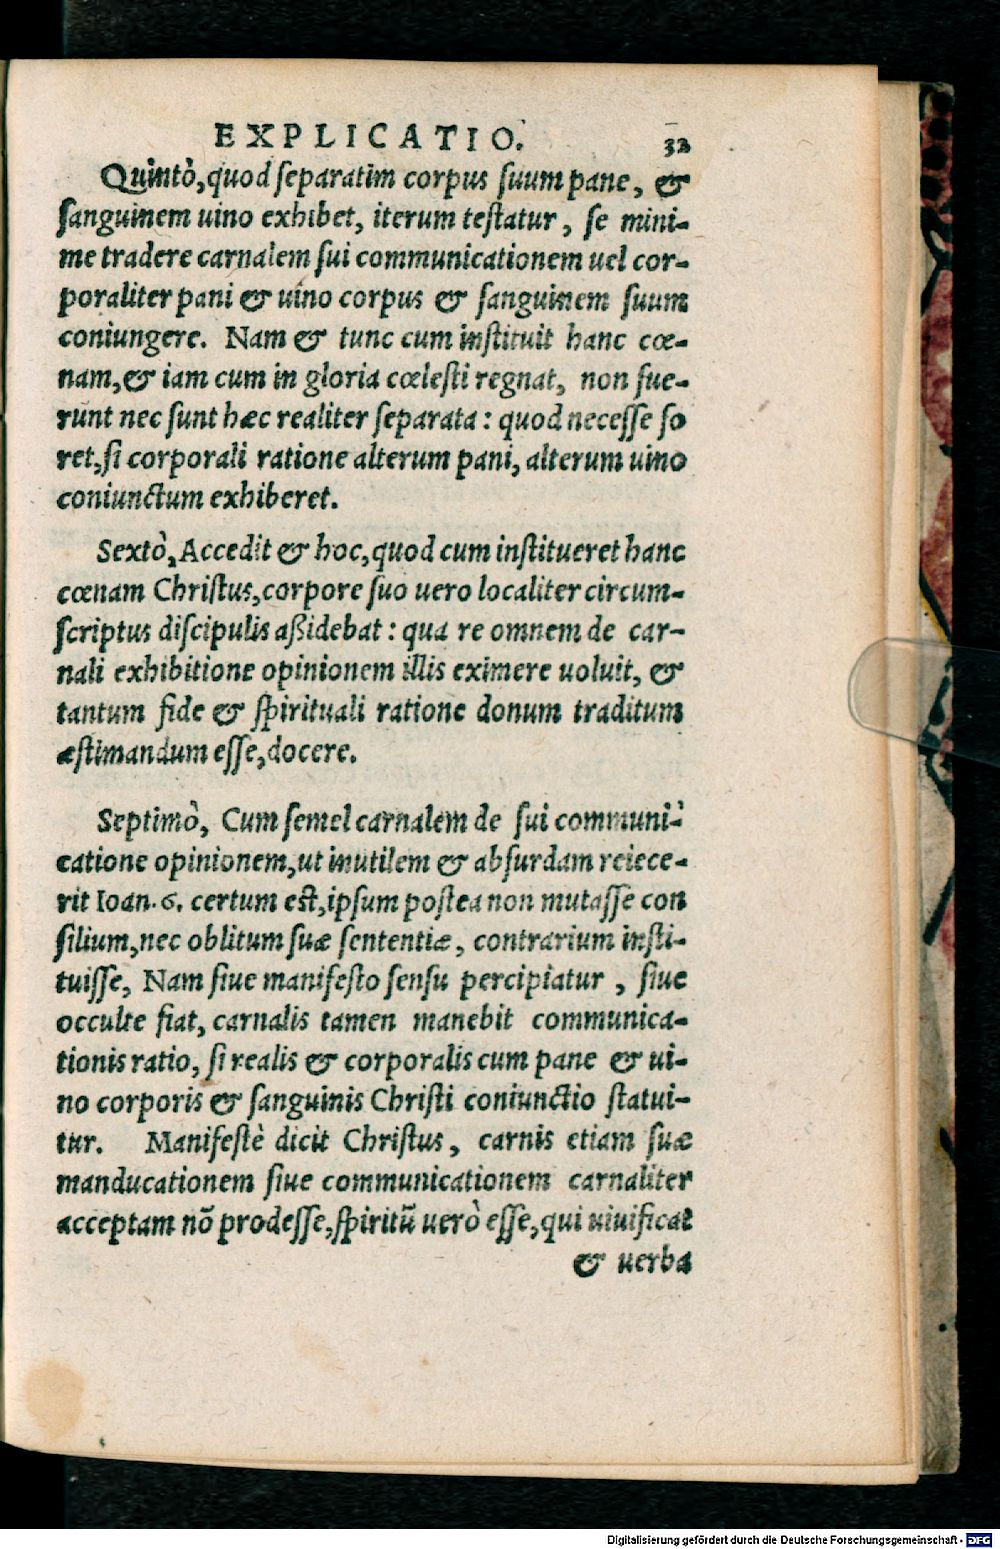 EXPLICATIO. 32
Quintò, quod separatim corpus suum pane, &
sanguinem uino exhibet, iterum testatur, se mini-
me tradere carnalem sui communicationem uel cor-
poraliter pani & uino corpus & sanguinem suum
coniungere. Nam & tunc cum instituit hanc cœ-
nam, & iam cum in gloria cœlesti regnat, non fue-
runt nec sunt hæc realiter separata: quod necesse fo
ret, si corporali ratione alterum pani, alterum uino
coniunctum exhiberet.
Sextò, Accedit & hoc, quod cum institueret hanc
cœnam Christus, corpore suo uero localiter circum-
scriptus discipulis aßidebat: qua re omnem de car-
nali exhibitione opinionem illis eximere uoluit, &
tantum fide & spirituali ratione donum traditum
æstimandum esse, docere.
Septimò, Cum semel carnalem de sui communi-
catione opinionem, ut inutilem & absurdam reiece-
rit Ioan. 6. certum est, ipsum postea non mutasse con
silium, nec oblitum suæ sententiæ, contrarium insti-
tuisse, Nam siue manifesto sensu percipiatur, siue
occulte fiat, carnalis tamen manebit communica-
tionis ratio, si realis & corporalis cum pane & ui-
no corporis & sanguinis Christi coniunctio statui-
tur. Manifestè dicit Christus, carnis etiam suæ
manducationem siue communicationem carnaliter
acceptam nõ prodesse, spiritũ uerò esse, qui uiuificat
& uerba
Digitalisierung gefördert durch die Deutsche Forschungsgemeinschaft - DFG